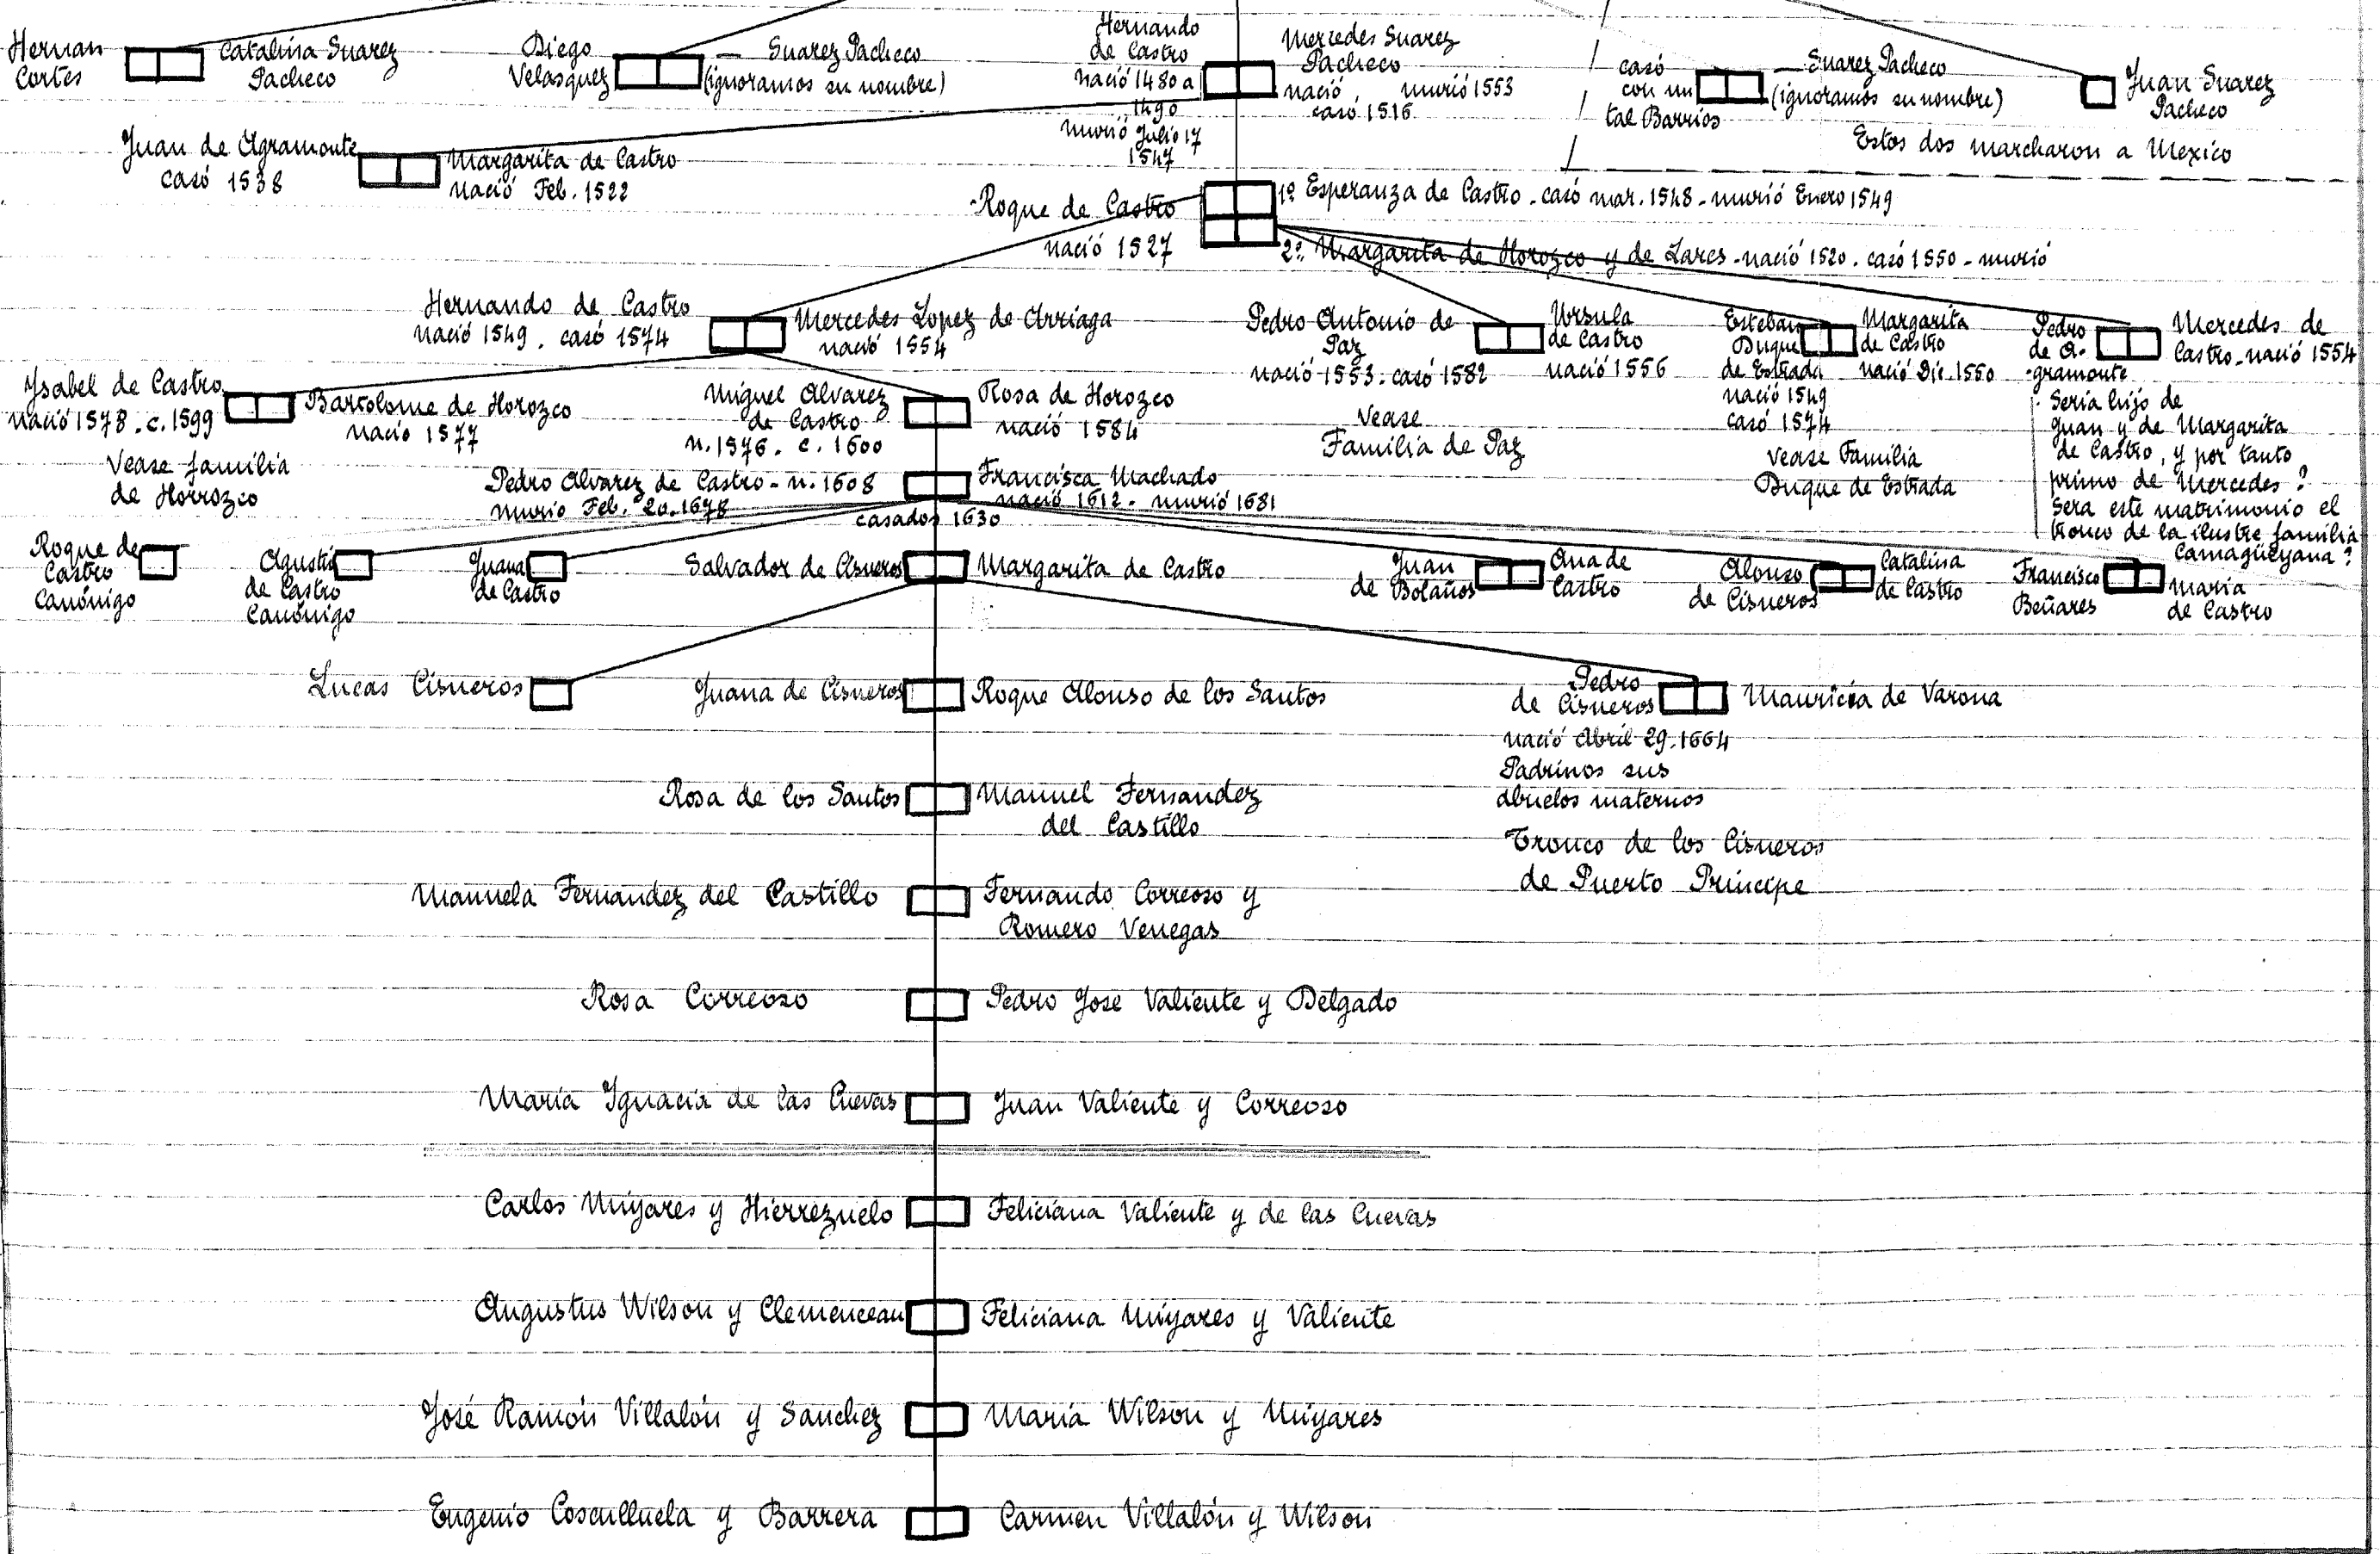 Hernan
Cortes
Catalina Suarez
Pacheco
Diego
Velasquez
— Suarez Pacheco
(ignoramos su nombre)
Hernando
de Castro
nació 1480 a
1490
murió Julio 17
1547
Mercedes Suarez
Pacheco
nació , murió 1553
casó 1516
casó
con un
tal Barrios
— Suarez Pacheco
(ignoramos su nombre)
Juan Suarez
Pacheco
Estos dos marcharon a Mexico
Juan de Agramonte
casó 1538
Margarita de Castro
nació Feb. 1522
Roque de Castro
nació 1527
1ª Esperanza de Castro - casó mar. 1548 - murió Enero 1549
2ª Margarita de Horozco y de Lares - nació 1520 . casó 1550 - murió
Hernando de Castro
nació 1549 . casó 1574
Mercedes Lopez de Arriaga
nació 1554
Pedro Antonio de
Paz
nació 1553 . casó 1582
Ursula
de Castro
nació 1556
Vease
Familia de Paz
Esteban
Duque
de Estrada
nació 1549
casó 1574
Margarita
de Castro
nació Dic. 1550
Vease Familia
Duque de Estrada
Pedro
de A-
gramonte
Mercedes de
Castro - nació 1554
Seria hijo de
Juan y de Margarita
de Castro, y por tanto
primo de Mercedes?
Sera este matrimonio el
tronco de la ilustre familia
Camagüeyana?
Ysabel de Castro
nació 1578 . c. 1599
Bartolome de Horozco
nació 1577
Vease familia
de Horrozco
Miguel Alvarez
de Castro
n. 1576 . c. 1600
Rosa de Horozco
nació 1584
Pedro Alvarez de Castro - n. 1608
murio Feb. 20. 1678
Francisca Machado
nació 1612 - murió 1681
casados 1630
Roque de
Castro
Canónigo
Agustin
de Castro
Canónigo
Juana
de Castro
Salvador de Cisneros
Margarita de Castro
Juan
de Bolaños
Ana de
Castro
Alonso
de Cisneros
Catalina
de Castro
Francisco
Beñares
Maria
de Castro
Lucas Cisneros
Juana de Cisneros
Roque Alonso de los Santos
Pedro
de Cisneros
Mauricia de Varona
nació Abril 29. 1664
Padrinos sus
abuelos maternos
Tronco de los Cisneros
de Puerto Principe
Rosa de los Santos
Manuel Fernandez
del Castillo
Manuela Fernandez del Castillo
Fernando Correoso y
Romero Venegas
Rosa Correoso
Pedro Jose Valiente y Delgado
Maria Ygnacia de las Cuevas
Juan Valiente y Correoso
Carlos Miyares y Hierrezuelo
Feliciana Valiente y de las Cuevas
Augustus Wilson y Clemenceau
Feliciana Miyares y Valiente
José Ramón Villalón y Sanchez
Maria Wilson y Miyares
Eugenio Cosculluela y Barrera
Carmen Villalón y Wilson